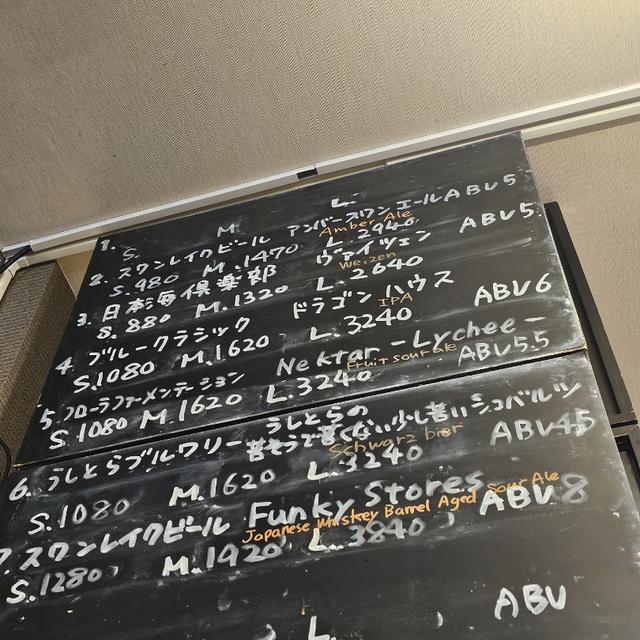 1.
S. M L.
2. スワンレイクビール アンバースワンエール ABV5
Amber Ale
S.980 M.1470 L.2940
3. 日本海倶楽部 ヴァイツェン ABV5
Weizen
S.880 M.1320 L.2640
4. ブルークラシック ドラゴンハウス ABV6
IPA
S.1080 M.1620 L.3240
5. フローラファーメンテーション Nektar -Lychee- ABV5.5
Fruit sour ale
S.1080 M.1620 L.3240
6. うしとらブルワリー うしとらの
苦そうで苦くない少し苦いシュバルツ
Schwarz bier ABV4.5
S.1080 M.1620 L.3240
7. スワンレイクビール Funky Stores ABV8
Japanese Whiskey Barrel Aged Sour Ale
S.1280 M.1920 L.3840
ABV
L.